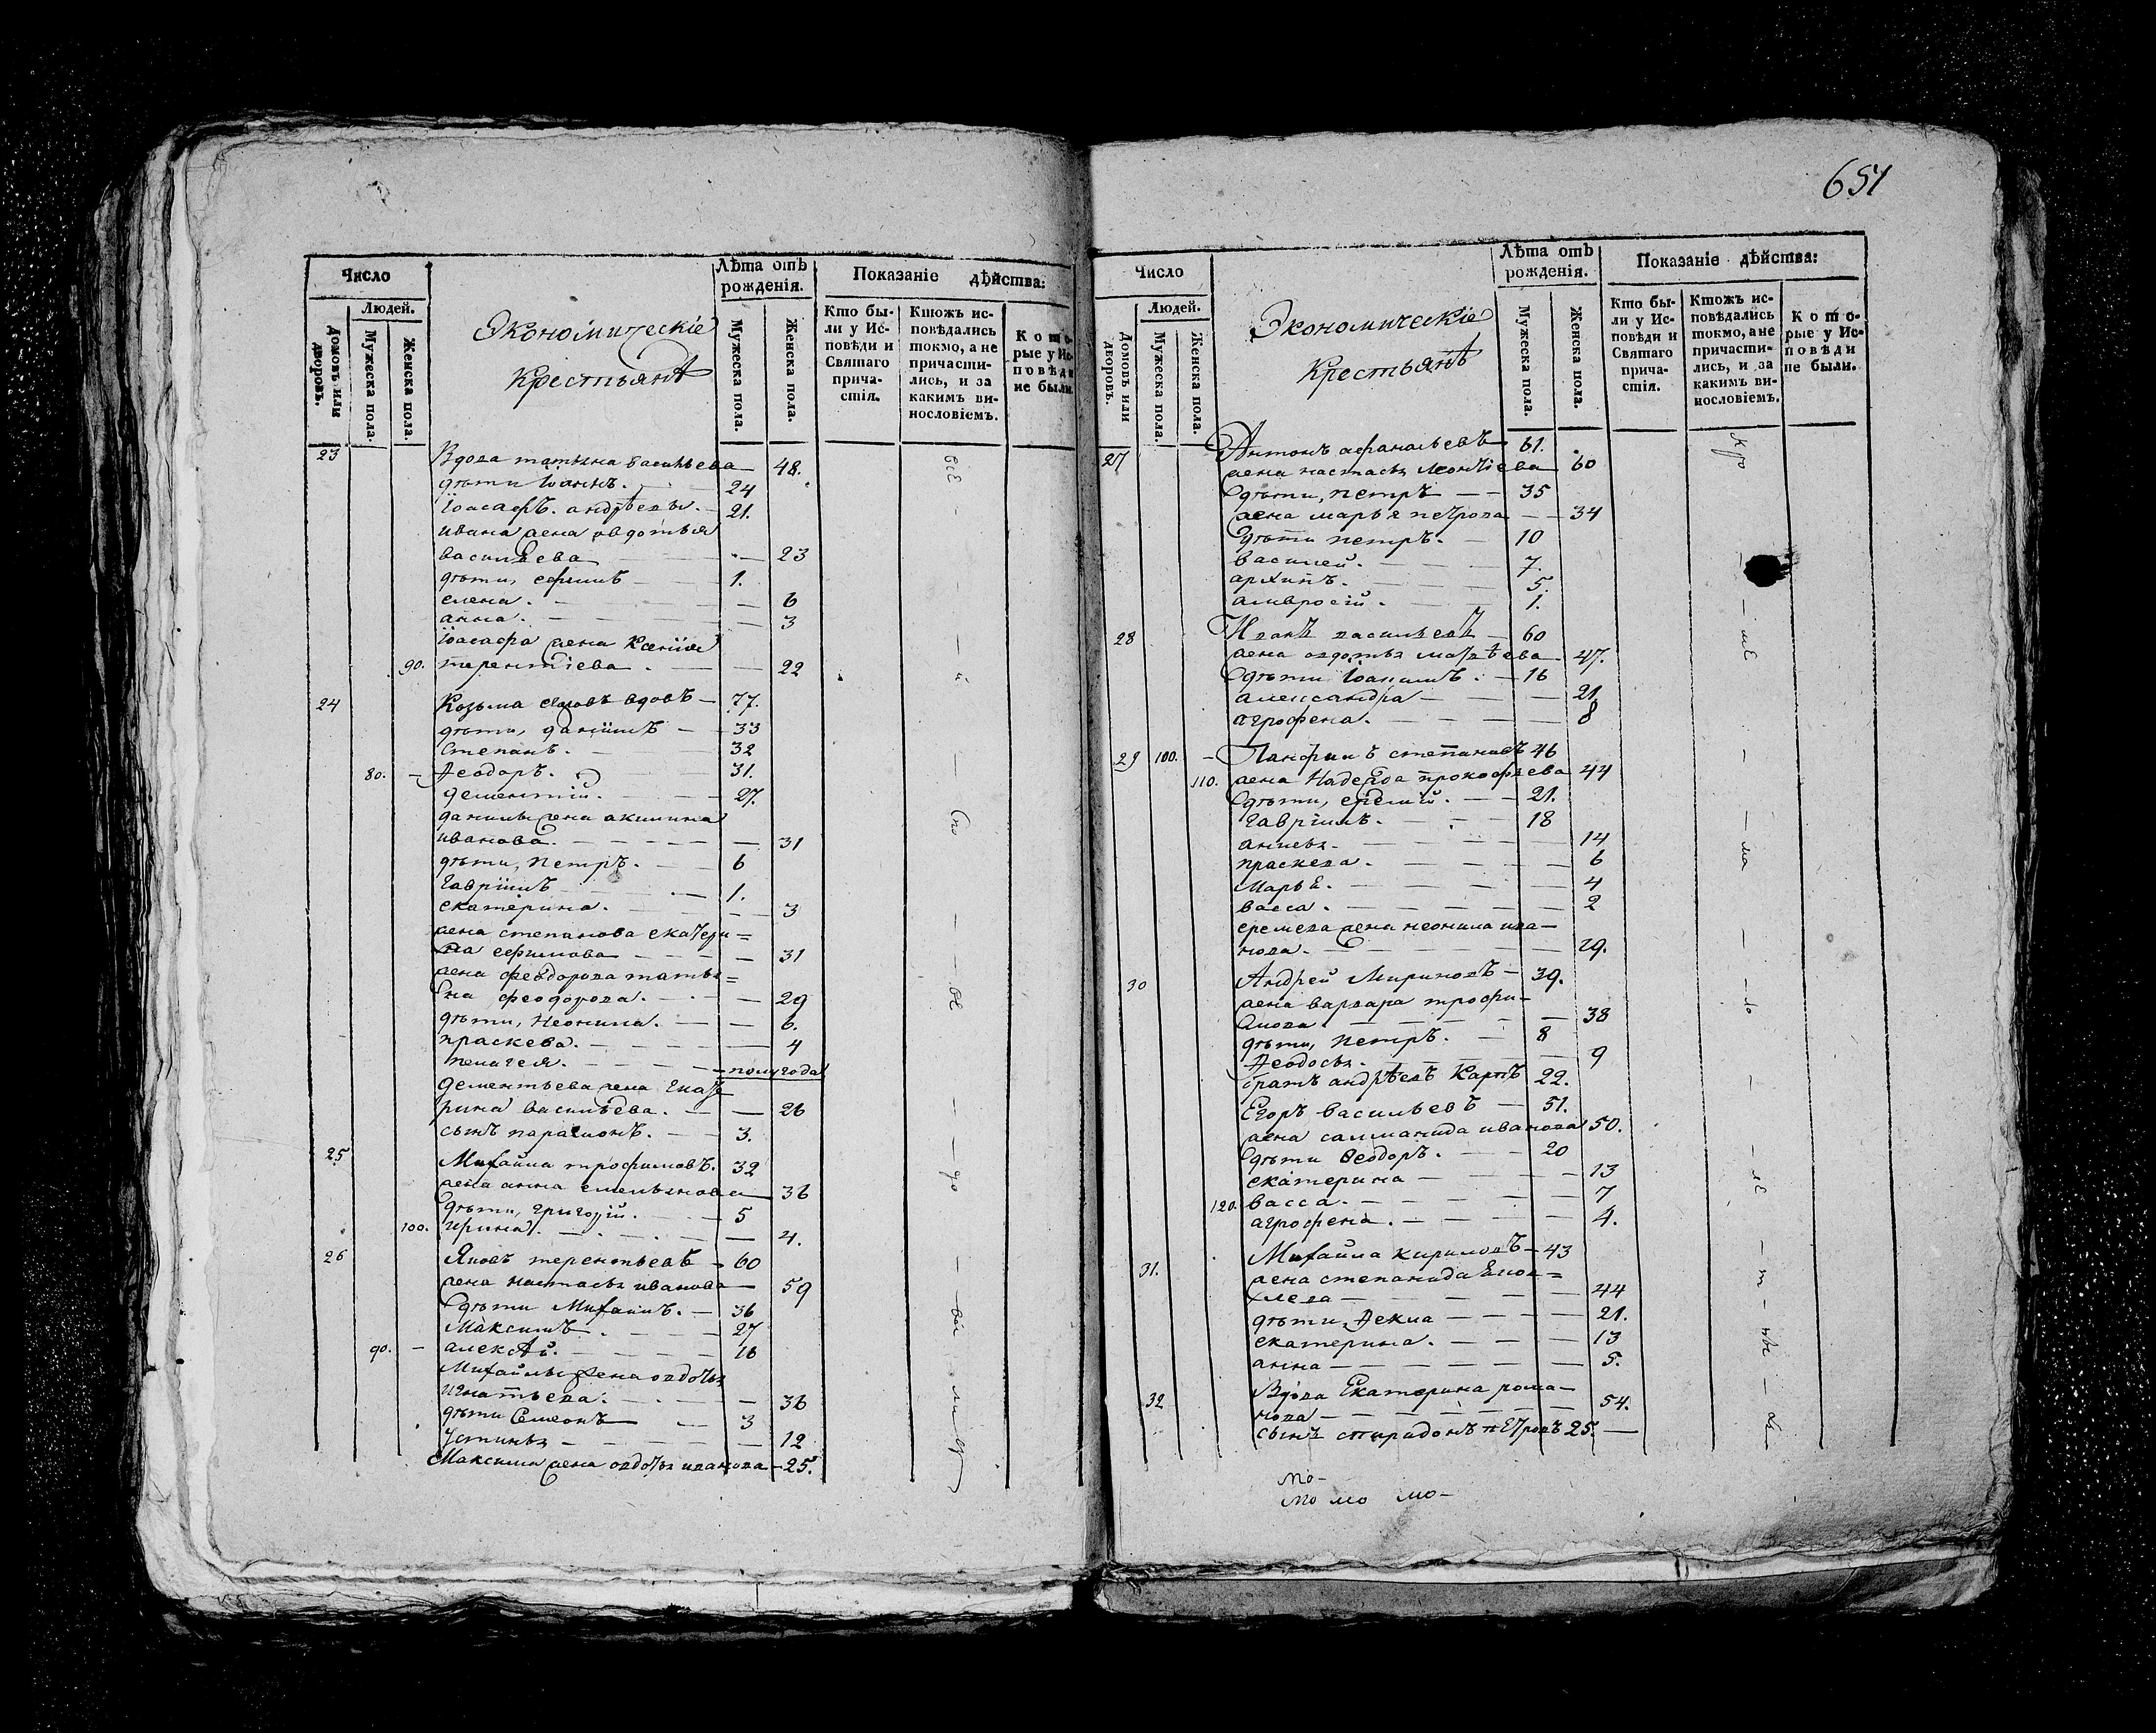 Число
Людей.
Домовъ или дворовъ.
Мужеска пола.
Женска пола.
Экономическіе
Крестьянѣ
Лѣта отъ рожденія.
Мужеска пола.
Женска пола.
Показаніе дѣйства:
Кто бы-
ли у Ис-
повѣди и
Святаго
прича-
стія.
Ктожъ ис-
повѣдались
токмо, а не
причасти-
лись, и за
какимъ ви-
нословіемъ.
Кото-
рые у Ис-
повѣди
не были.
23 Вдова татьяна васильева 48.
дѣти Іоаннъ. 24
Іоасафъ. андрѣевы. 21.
ивана жена овдотья
васильева 23
дѣти, ефимъ 1.
елена. 6
анна. 3
Іоасафа жена Ксенія
90. терентіева 22
24 Козьма вдовъ 77.
дѣти, даніилъ 33
Степанъ. 32
80. Ѳеодоръ. 31.
дементій. 27.
данилы жена акилина
иванова. 31
дѣти, петръ. 6
Гавріилъ 1.
екатерина. 3
жена степанова екатери=
на ефимова 31
жена феодорова татья=
на феодорова. 29
дѣти, Неонила. 6.
праскева. 4
пелагея. полугода
дементьева жена Екате
рина васильева. 26
сынъ парамонъ. 3.
25 Михайла трофимовъ. 32
жена анна емельянова 36
дѣти, григорій. 5
100. ирина. 4.
26 Яковъ терентьевъ 60
жена настасья иванова 59
дѣти Михаилъ. 36
Максимъ. 27
90. алексѣй. 16
Михайлы жена овдотья
игнатьева. 36
дѣти Симеонъ 3
Устинья 12
Максима жена овдотья иванова 25.
651
Число
Людей.
Домовъ или дворовъ.
Мужеска пола.
Женска пола.
Экономическіе
Крестьянѣ
Лѣта отъ рожденія.
Мужеска пола.
Женска пола.
Показаніе дѣйства:
Кто бы-
ли у Ис-
повѣди и
Святаго
прича-
стія.
Ктожъ ис-
повѣдались
токмо, а не
причасти-
лись, и за
какимъ ви-
нословіемъ.
Кото-
рые у Ис-
повѣди
не были.
27 Антонъ афанасьевъ 61.
жена настасья леонтіева 60
дѣти, петръ 35
жена марья петрова 34
дѣти петръ. 10
василей. 7.
архипъ. 5.
амвросій. 1.
28 Иванъ васильевъ 60
жена овдотья матвѣева 47.
дѣти Іоакимъ. 16
александра 21
агрофена. 8
29 100. Панфилъ степановъ 46
110. жена Надежда прокофьева 44
дѣти, еремій. 21.
гавріилъ. 18
анисья. 14
праскева. 6
Марья. 4
васса. 2
еремея жена неонила ива-
нова. 29.
30 Андрей Мироновъ 39.
жена варвара трофи-
мова 38
дѣти, петръ. 8
Ѳеодосья. 9
братъ андрѣевъ Карпъ 22.
Егоръ васильевъ 51.
жена саламанида иванова 50.
дѣти Ѳеодоръ. 20
екатерина 13
120. васса. 7
агрофена. 4.
31. Михайла кириловъ 43
жена степанида Яков=
лева 44
дѣти, Ѳекла 21.
екатерина. 13
анна 5.
32 Вдова Екатерина рома-
нова 54.
сынъ спиридонъ петровъ 25.
мо-
мо мо мо-